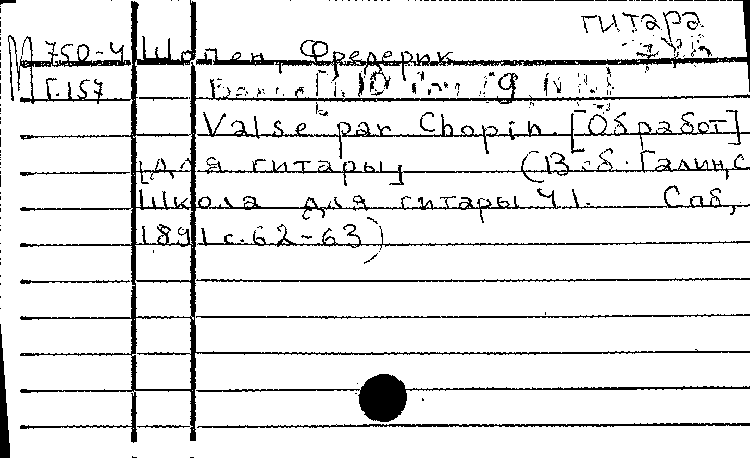 гитара
М 750-4 Шопен, Фредерик
Г.157 Вальс
Valse par Chopin. [Обработ]
[для гитары] (В сб. Галин, С
Школа для гитары Ч I. Саб,
1891 с. 62-63)